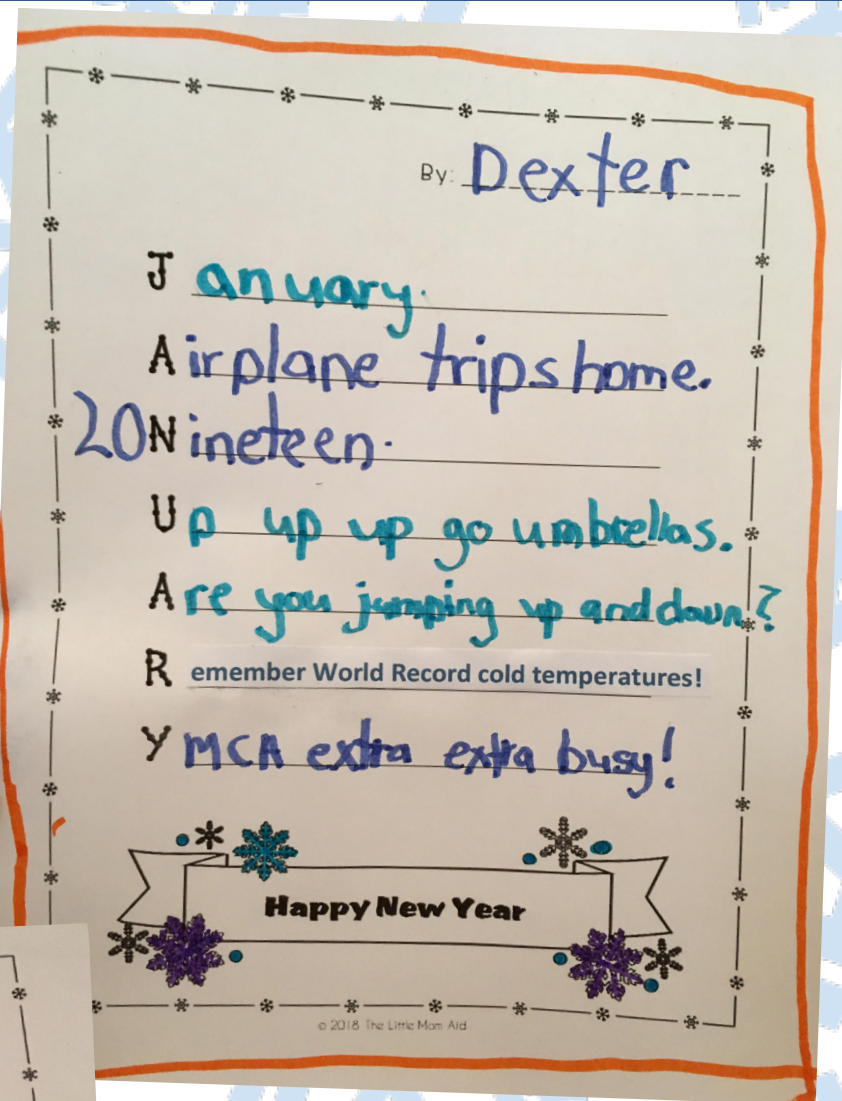 By: Dexter
January.
Airplane trips home.
20Nineteen.
Up up up go umbrellas.
Are you jumping up and down?
Remember World Record cold temperatures!
YMCA extra extra busy!
Happy New Year
© 2018 The Little Mom Aid